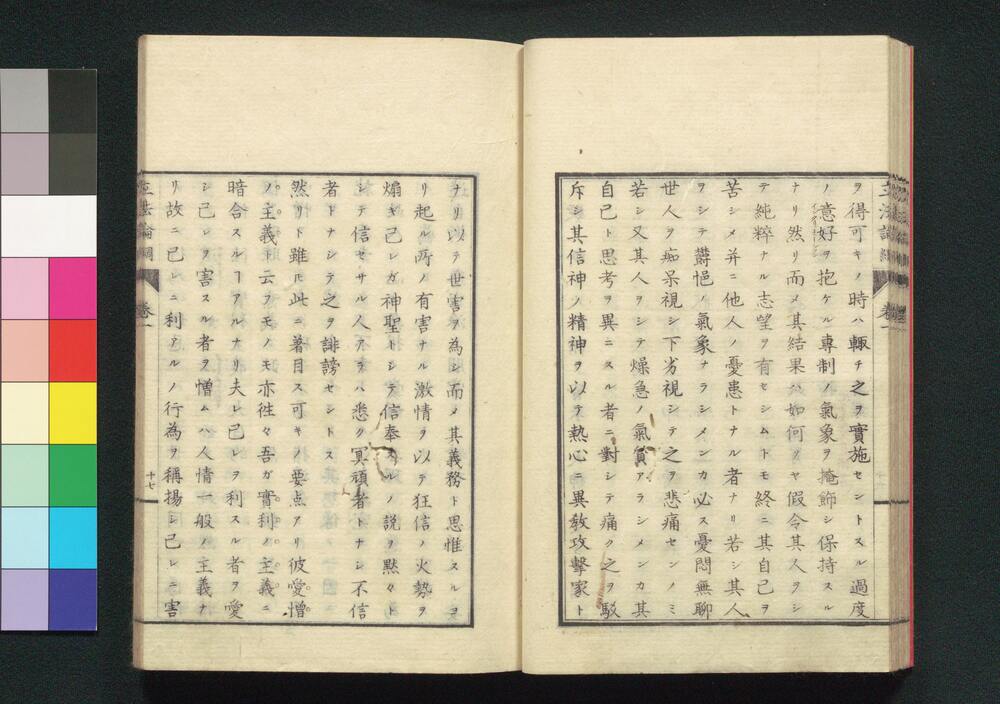 ヲ得可キノ時ハ輙チ之ヲ實施セントスル過度
ノ意好ヲ抱ケル專制ノ氣象ヲ掩飾シ保持スル
ナリ然リ而メ其結果ハ如何ソヤ假令其人ヲシ
テ純粹ナル志望ヲ有セシムトモ終ニ其自己ヲ
苦シメ并ニ他人ノ憂患トナル者ナリ若シ其人
ヲシテ欝悒ノ氣象ナラシメンカ必ス憂悶無聊
世人ヲ痴呆視シ下劣視シテ之ヲ悲痛センノミ
若シ又其人ヲシテ燥急ノ氣質アラシメンカ其
自己ト思考ヲ異ニスル者ニ對シテ痛ク之ヲ駁
斥シ其信神ノ精神ヲ以テ熱心ニ異敎攻擊家ト
立法論綱
卷一
ナリ以テ世害ヲ為シ而メ其義務ト思惟スルヨ
リ起ル所ノ有害ナル激情ヲ以テ狂信ノ火勢ヲ
煽キ己レガ神聖トシテ信奉スルノ説ヲ黙々ト
シテ信セサル人アラハ悉ク冥頑者トナシ不信
者トナシテ之ヲ誹謗セントス
然リト雖𪜈此ニ著目ス可キノ要点アリ彼愛憎
ノ主義ト云フモノモ亦徃々吾ガ實利ノ主義ニ
暗合スルヿアルナリ夫レ己レヲ利スル者ヲ愛
シ己レヲ害スル者ヲ憎ムハ人情一般ノ主義ナ
リ故ニ己レニ利アルノ行為ヲ稱揚シ己レニ害
立法論綱
卷一
十七